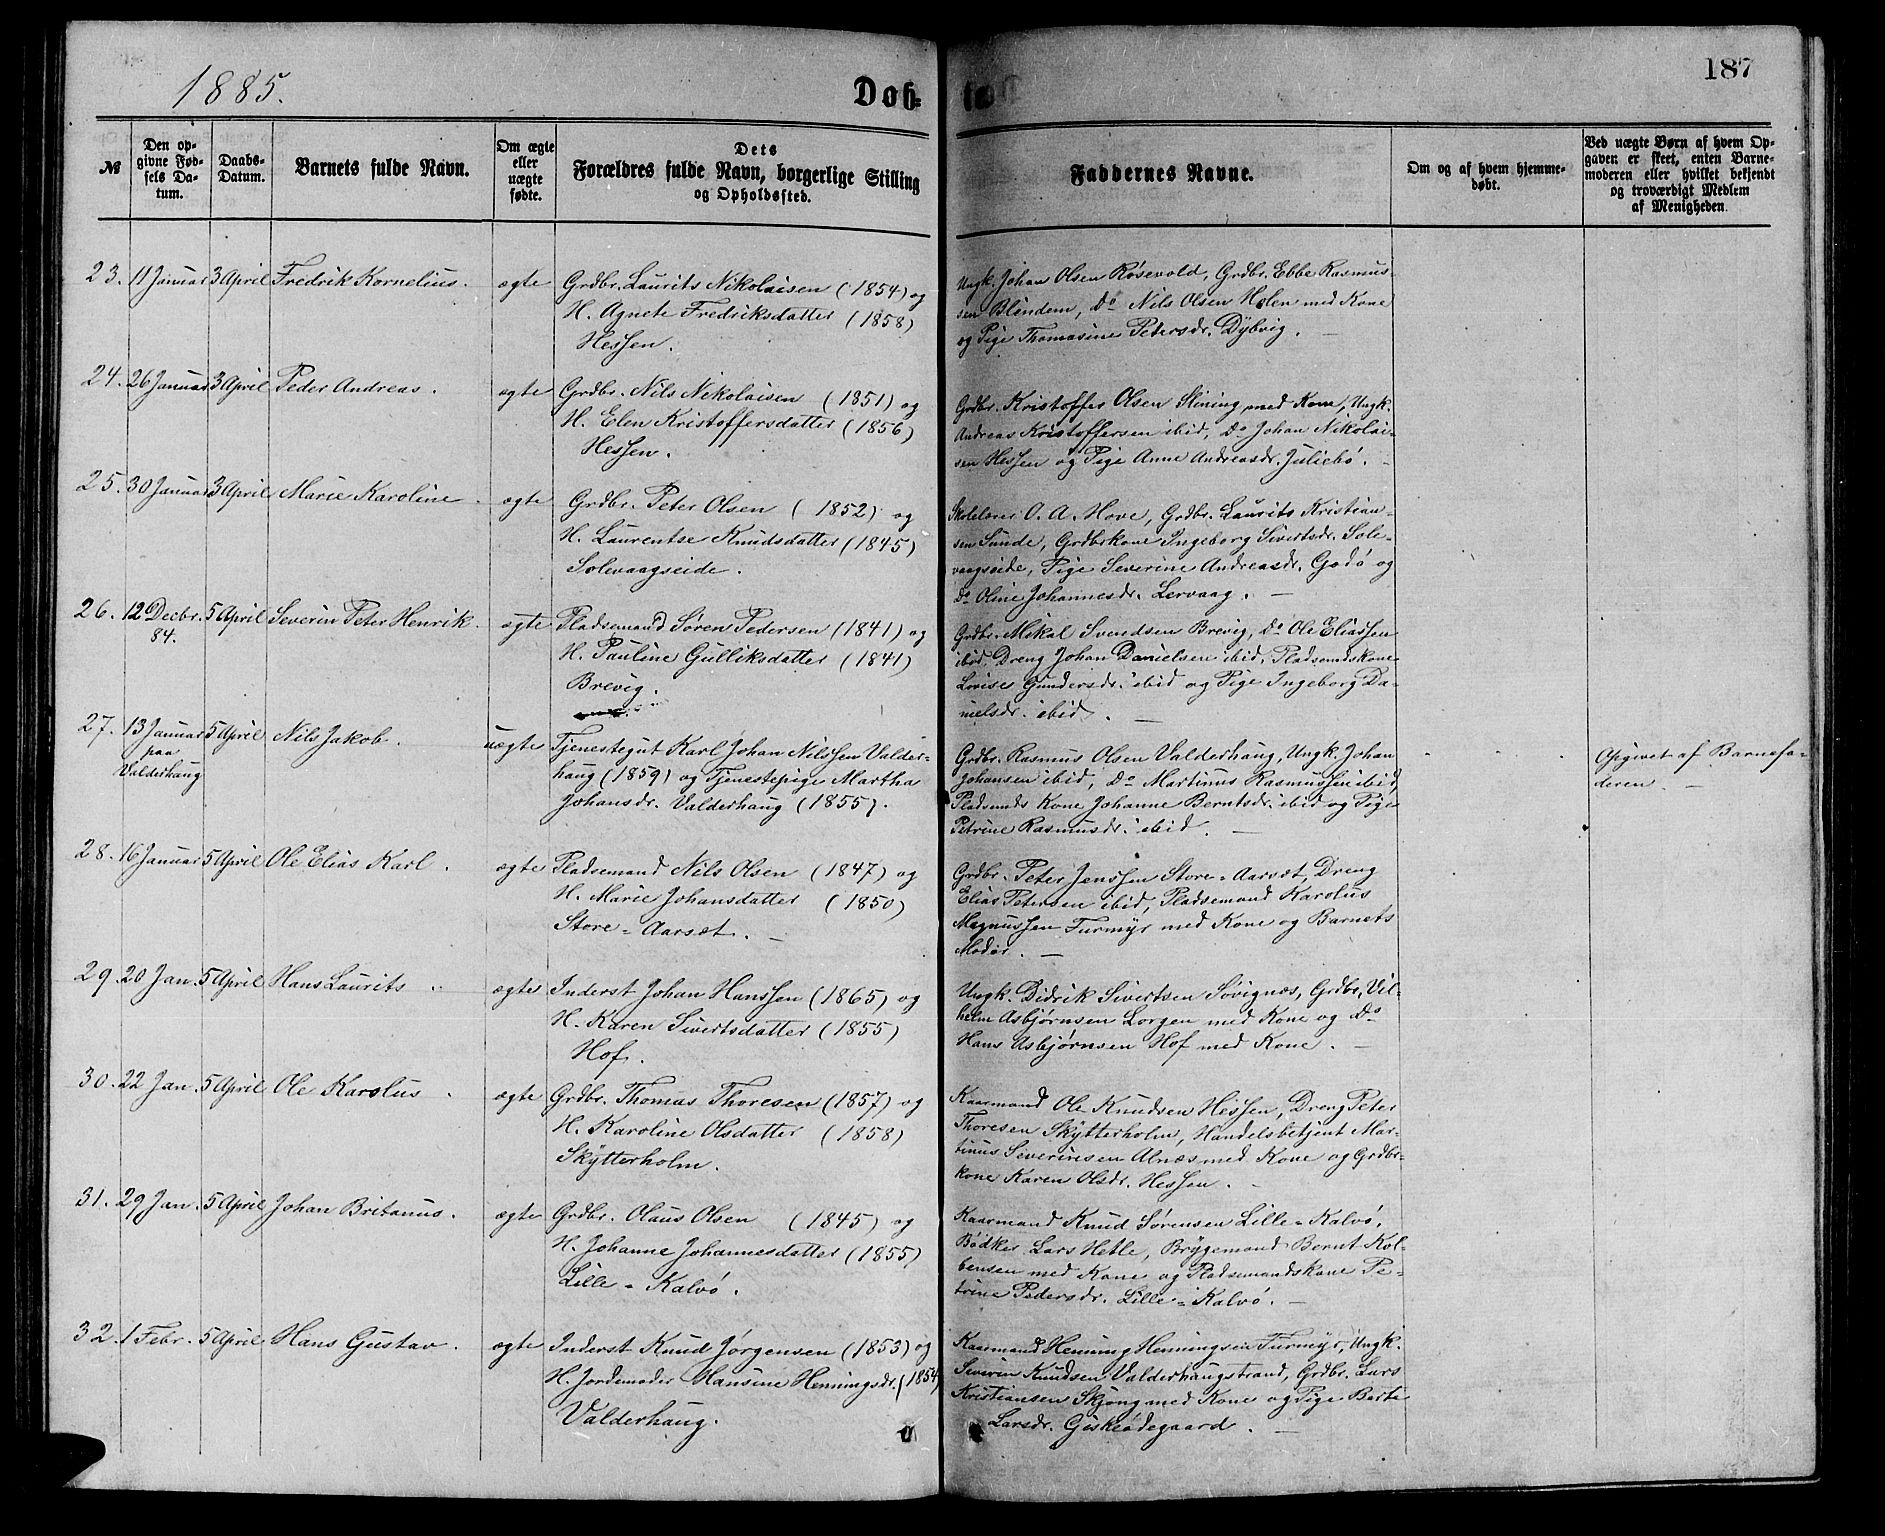 1885.
Døb-
te.
187
№
Den op-
givne Fød-
sels Da-
tum.
Daabs-
Datum.
Barnets fulde Navn.
Om ægte
eller
uægte
fødte.
Dets
Forældres fulde Navn, borgerlige Stilling
og Opholdssted.
Faddernes Navne.
Om og af hvem hjemme-
døbt.
Ved uægte Børn af hvem Op-
gaven er skeet, enten Barne-
moderen eller hvilket bekjendt
og troværdigt Medlem
af Menigheden.
23. 11 Januar 3 April Fredrik Kornelius. ægte Grdbr. Laurits Nikolaisen (1854) og
H. Agnete Fredriksdatter (1858)
Hessen.
Ungk. Johan Olsen Røsevold, Grdbr. Ebbe Rasmus-
sen Blindem, Do Nils Olsen Holen med Kone
og Pige Thomasine Petersdr. Dybvig. —
24. 26 Januar 3 April Peder Andreas. ægte Grdbr. Nils Nikolaisen (1851) og
H. Elen Kristoffersdatter (1856)
Hessen.
Grdbr. Kristoffer Olsen Slining med Kone, Ungk.
Andreas Kristoffersen ibid, Do Johan Nikolai-
sen Hessen og Pige Anne Andreasdr. Juliebø. —
25. 30 Januar 3 April Marie Karoline. ægte Grdbr. Peter Olsen (1852) og
H. Laurentse Knudsdatter (1845)
Solevaagseide.
Skolelærer O. A. Hove, Grdbr. Laurits Kristian-
sen Sunde, Grdbrkone Ingeborg Sivertsdr. Sole-
vaagseide, Pige Severine Andreasdr. Godø og
Do Oline Johannesdr. Lervaag. —
26. 12 Decbr. 5 April Severin Peter Henrik. ægte Pladsemand Søren Pedersen (1841) og
84.
H. Pauline Gulliksdatter (1841)
Brevig.
Grdbr. Mikal Svendsen Brevig, Do Ole Eliassen
ibid. Dreng Johan Danielsen ibid, Pladsemdskone
Lovise Gundersdr. ibid og Pige Ingeborg Da-
nielsdr. ibid. —
27. 13 Januar 5 April Nils Jakob. uægte Tjenestegut Karl Johan Nilssen Valder-
paa
Valderhaug
haug (1859) og Tjenestepige Martha
Johansdr. Valderhaug (1855).
Grdbr. Rasmus Olsen Valderhaug, Ungk. Johan
Johansen ibid, Do Martinus Rasmussen ibid,
Pladsemds Kone Johanne Berntsdr. ibid og Pige
Petrine Rasmusdr. ibid. —
Opgivet af Barnefa-
deren. —
28. 16 Januar 5 April Ole Elias Karl. ægte Pladsemand Nils Olsen (1847) og
H. Marie Johansdatter (1850)
Store-Aarsæt. —
Grdbr. Peter Jenssen Store-Aarsæt, Dreng
Elias Petersen ibid, Pladsemand Karolus
Magnussen Furmyr med Kone og Barnets
Moder. —
29. 20 Jan. 5 April Hans Laurits ægte Inderst Johan Hanssen (1865) og
H. Karen Sivertsdatter (1855)
Hof.
Ungk. Didrik Sivertsen Søvignæs, Grdbr. Vil-
helm Asbjørnsen Lorgen med Kone og Do
Hans Asbjørnsen Hof med Kone. —
30. 22 Jan. 5 April Ole Karolus. ægte Grdbr. Thomas Thoresen (1857) og
H. Karoline Olsdatter (1858)
Skytterholm.
Kaarmand Ole Knudsen Hessen, Dreng Peter
Thoresen Skytterholm, Handelsbetjent Mar-
tinus Severinsen Alnæs med Kone og Grdbr-
kone Karen Olsdr. Hessen. —
31. 29 Jan. 5 April Johan Britanus. ægte Grdbr. Olaus Olsen (1845) og
H. Johanne Johannesdatter (1855)
Lille-Kalvø.
Kaarmand Knud Sørensen Lille-Kalvø,
Bødker Lars Hetle, Bryggemand Bernt Kol-
bensen med Kone og Pladsemandskone Pe-
trine Pedersdr. Lille-Kalvø. —
32. 1 Febr. 5 April Hans Gustav. ægte Inderst Knud Jørgensen (1853) og
H. Jordemoder Hansine Henningsdr. (1854)
Valderhaug.
Kaarmand Henning Henningsen Furmyr, Ungk.
Severin Knudsen Valderhaugstrand, Grdbr. Lars
Kristiansen Skjong med Kone og Pige Berte
Larsdr. Giskeødegaard. —